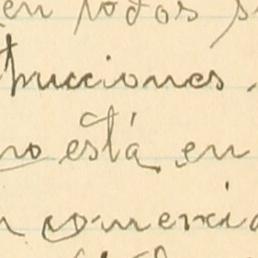 en todos s
trucciones,
no está en
n comerci